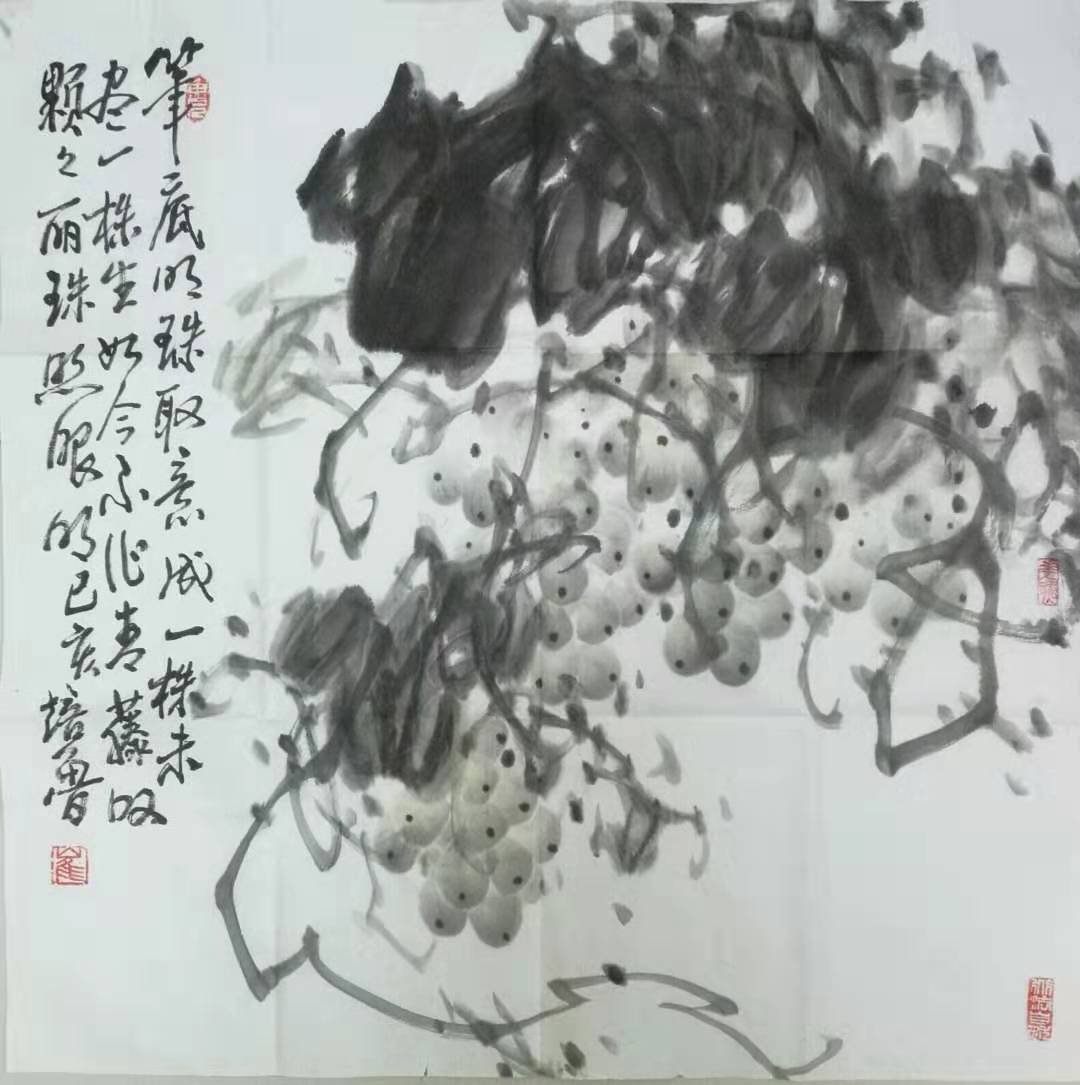 筆底明珠取意成一株未
尽一株生如今不作青藤叹
顆々丽珠照眼明己亥培魯
崔